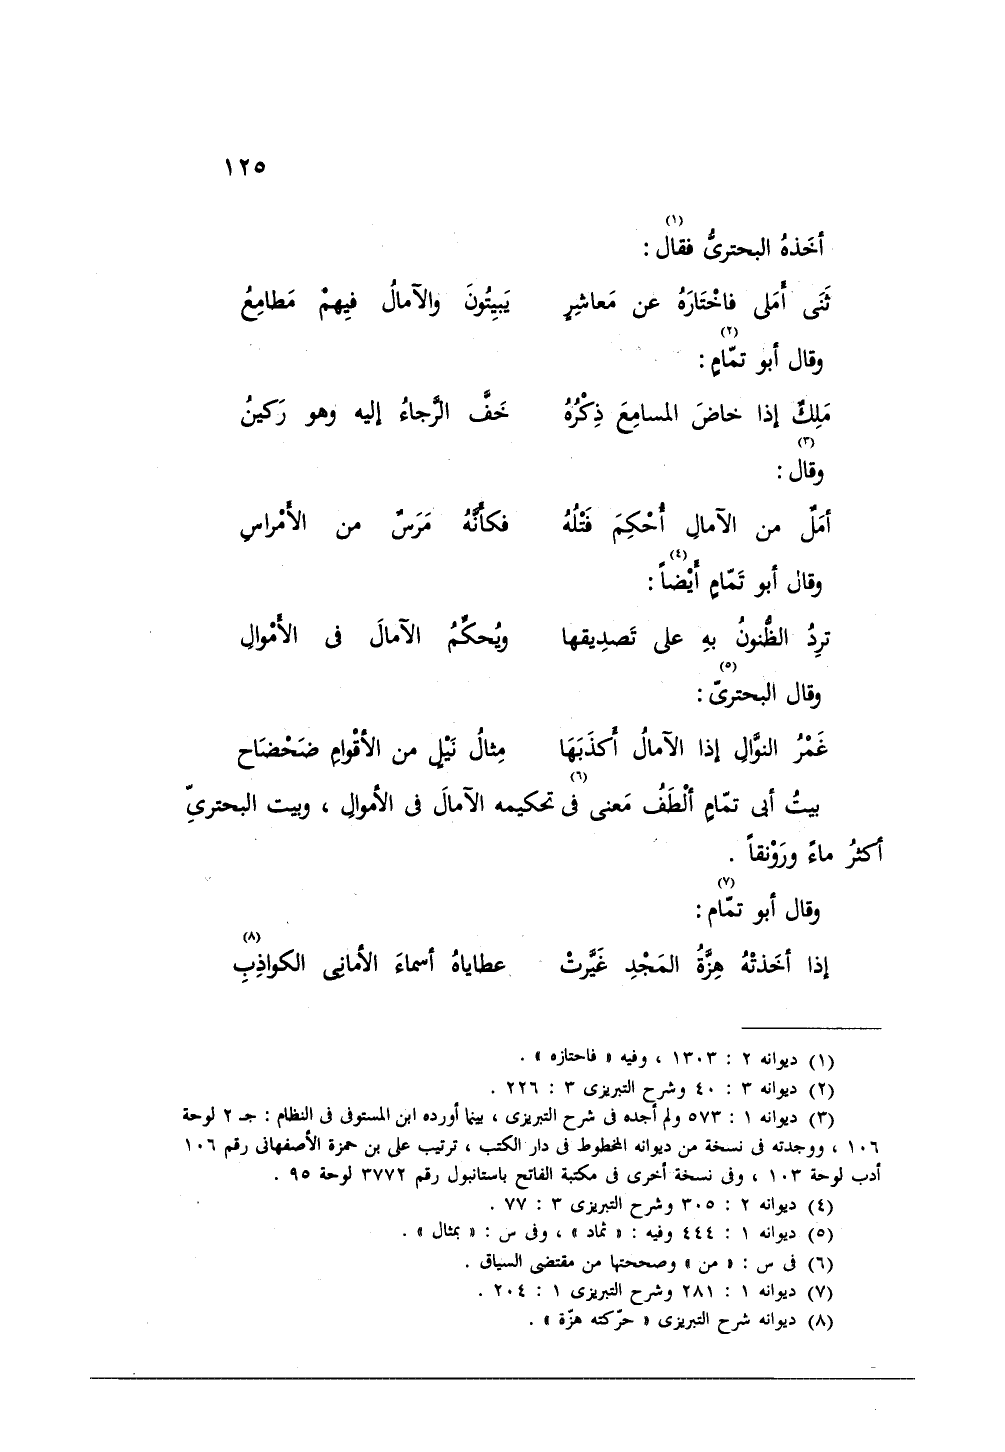 ١٢٥
أخَذهُ البحترىُّ فقال (١) :
ثَنَى أَمَلى فاخْتَارَهُ عن مَعاشيرٍ يَبيِتُونَ والآمالُ فيِهمْ مَطامِعُ
وقال أبو تمّامٍ (٢) :
مَلِكٌ إذا خاضَ المسامِعَ ذِكْرُهُ خَفَّ الرَّجاءُ إليه وهو رَكينُ
وقال (٣) :
أمَلٌ من الآمالِ أُحْكِمَ فَتْلُهُ فكأَنَّهُ مَرَسٌ من الأَمْراسِ
وقال أبو تَمّامٍ أَيْضاً (٤) :
ترِدُ الظُّنونُ بهِ على تَصدِيقها ويُحكِّمُ الآمالَ فى الأَمْوالِ
وقال البحترىّ (٥) :
غَمْرُ النوَّالِ إذا الآمالُ أَكذَبَهَا مِثالُ نَيْلٍ من الأقْوامِ ضَحْضَاح
بيتُ أبى تمّامٍ ألْطَفُ مَعنى فى (٦) تحكيمه الآمالَ فى الأموالِ ، وبيت البحترىِّ
أكثرُ ماءً ورَوْنقاً .
وقال أبو تمّام (٧) :
إذا أخَذتْهُ هِزَّةُ المَجْدِ غَيَّرتْ عطاياهُ أسماءَ الأمانِى الكواذِبِ (٨)
(١) ديوانه ٢ : ١٣٠٣ ، وفيه « فاحتازه » .
(٢) ديوانه ٣ : ٤٠ وشرح التبريزى ٣ : ٢٢٦ .
(٣) ديوانه ١ : ٥٧٣ ولم أجده فى شرح التبريزى ، بينما أورده ابن المستوفى فى النظام : جـ ٢ لوحة
١٠٦ ، ووجدته فى نسخة من ديوانه المخطوط فى دار الكتب ، ترتيب على بن حمزة الأصفهانى رقم ١٠٦
أدب لوحة ١٠٣ ، وفى نسخة أخرى فى مكتبة الفاتح باستانبول رقم ٣٧٧٢ لوحة ٩٥ .
(٤) ديوانه ٢ : ٣٠٥ وشرح التبريزى ٣ : ٧٧ .
(٥) ديوانه ١ : ٤٤٤ وفيه : « ثماد » ، وفى س : « بمثال » .
(٦) فى س : « من » وصححتها من مقتضى السياق .
(٧) ديوانه ١ : ٢٨١ وشرح التبريزى ١ : ٢٠٤ .
(٨) ديوانه شرح التبريزى « حرّكته هزّة » .